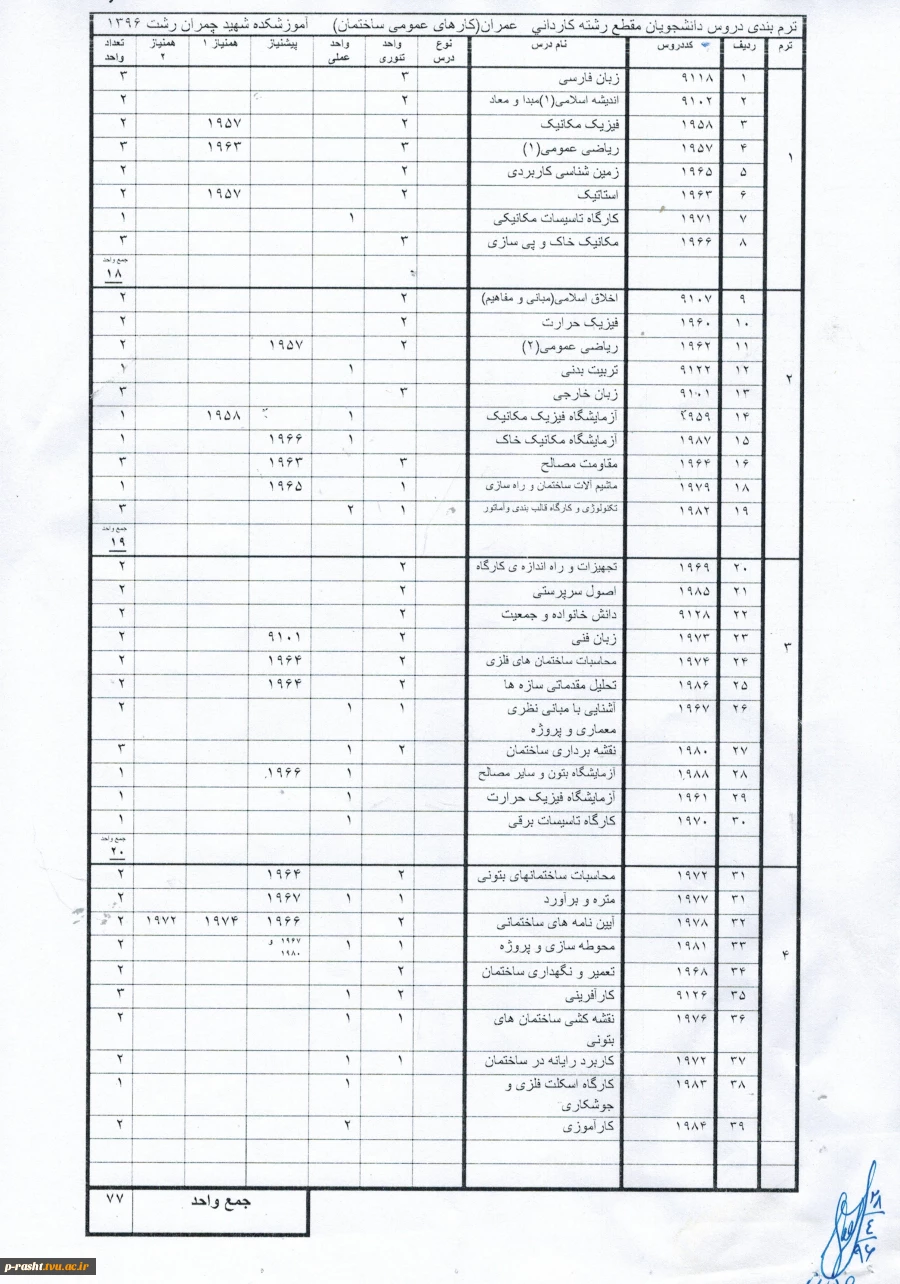 ترم بندی دروس دانشجویان مقطع رشته کاردانی عمران(کارهای عمومی ساختمان) آموزشکده شهید چمران رشت ۱۳۹۶
ترم ردیف کددروس نام درس نوع درس واحد تئوری واحد عملی پیشنیاز همنیاز ۱ همنیاز ۲ تعداد واحد
۱
۱ ۹۱۱۸ زبان فارسی ۳ ۳
۲ ۹۱۰۲ اندیشه اسلامی(۱)مبدا و معاد ۲ ۲
۳ ۱۹۵۸ فیزیک مکانیک ۲ ۱۹۵۷ ۲
۴ ۱۹۵۷ ریاضی عمومی(۱) ۳ ۱۹۶۳ ۳
۵ ۱۹۶۵ زمین شناسی کاربردی ۲ ۲
۶ ۱۹۶۳ استاتیک ۲ ۱۹۵۷ ۲
۷ ۱۹۷۱ کارگاه تاسیسات مکانیکی ۱ ۱
۸ ۱۹۶۶ مکانیک خاک و پی سازی ۳ ۳
جمع واحد
۱۸
۲
۹ ۹۱۰۷ اخلاق اسلامی(مبانی و مفاهیم) ۲ ۲
۱۰ ۱۹۶۰ فیزیک حرارت ۲ ۲
۱۱ ۱۹۶۲ ریاضی عمومی(۲) ۲ ۱۹۵۷ ۲
۱۲ ۹۱۲۲ تربیت بدنی ۱ ۱
۱۳ ۹۱۰۱ زبان خارجی ۳ ۳
۱۴ ۱۹۵۹ آزمایشگاه فیزیک مکانیک ۱ ۱۹۵۸ ۱
۱۵ ۱۹۸۷ آزمایشگاه مکانیک خاک ۱ ۱۹۶۶ ۱
۱۶ ۱۹۶۴ مقاومت مصالح ۳ ۱۹۶۳ ۳
۱۸ ۱۹۷۹ ماشیم آلات ساختمان و راه سازی ۱ ۱۹۶۵ ۱
۱۹ ۱۹۸۲ تکنولوژی و کارگاه قالب بندی وآماتور ۱ ۲ ۳
جمع واحد
۱۹
۳
۲۰ ۱۹۶۹ تجهیزات و راه اندازه ی کارگاه ۲ ۲
۲۱ ۱۹۸۵ اصول سرپرستی ۲ ۲
۲۲ ۹۱۲۸ دانش خانواده و جمعیت ۲ ۲
۲۳ ۱۹۷۳ زبان فنی ۲ ۹۱۰۱ ۲
۲۴ ۱۹۷۴ محاسبات ساختمان های فلزی ۲ ۱۹۶۴ ۲
۲۵ ۱۹۸۶ تحلیل مقدماتی سازه ها ۲ ۱۹۶۴ ۲
۲۶ ۱۹۶۷ آشنایی با مبانی نظری ۱ ۱ ۲
معماری و پروژه
۲۷ ۱۹۸۰ نقشه برداری ساختمان ۲ ۱ ۳
۲۸ ۱۹۸۸ آزمایشگاه بتون و سایر مصالح ۱ ۱۹۶۶ ۱
۲۹ ۱۹۶۱ آزمایشگاه فیزیک حرارت ۱ ۱
۳۰ ۱۹۷۰ کارگاه تاسیسات برقی ۱ ۱
جمع واحد
۲۰
۴
۳۱ ۱۹۷۲ محاسبات ساختمانهای بتونی ۲ ۱۹۶۴ ۲
۳۱ ۱۹۷۷ متره و برآورد ۱ ۱ ۱۹۶۷ ۲
۳۲ ۱۹۷۸ آیین نامه های ساختمانی ۲ ۱۹۶۶ ۱۹۷۴ ۱۹۷۲ ۲
۳۳ ۱۹۸۱ محوطه سازی و پروژه ۱ ۱ ۱۹۶۷ و ۱۹۸۰ ۲
۳۴ ۱۹۶۸ تعمیر و نگهداری ساختمان ۲ ۲
۳۵ ۹۱۲۶ کارآفرینی ۲ ۱ ۳
۳۶ ۱۹۷۶ نقشه کشی ساختمان های ۱ ۱ ۲
بتونی
۳۷ ۱۹۷۲ کاربرد رایانه در ساختمان ۱ ۱ ۲
۳۸ ۱۹۸۳ کارگاه اسکلت فلزی و ۱ ۱
جوشکاری
۳۹ ۱۹۸۴ کارآموزی ۲ ۲
جمع واحد ۷۷
۲۸
۴
۹۶
p-rasht.tvu.ac.ir